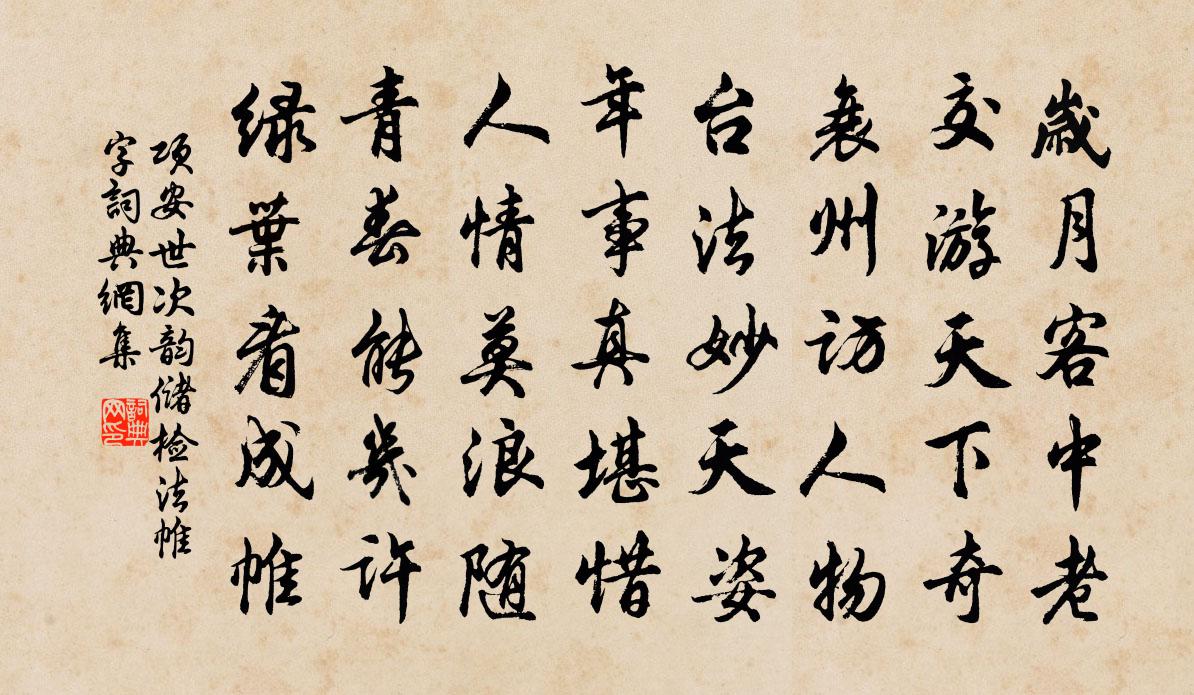 歲月客中老
交游天下奇
襄州访人物
台法妙天姿
年事真堪惜
人情莫浪随
青春能幾许
绿葉看成帷
项安世次韵儲检法帷
字詞典網集
詞典网印